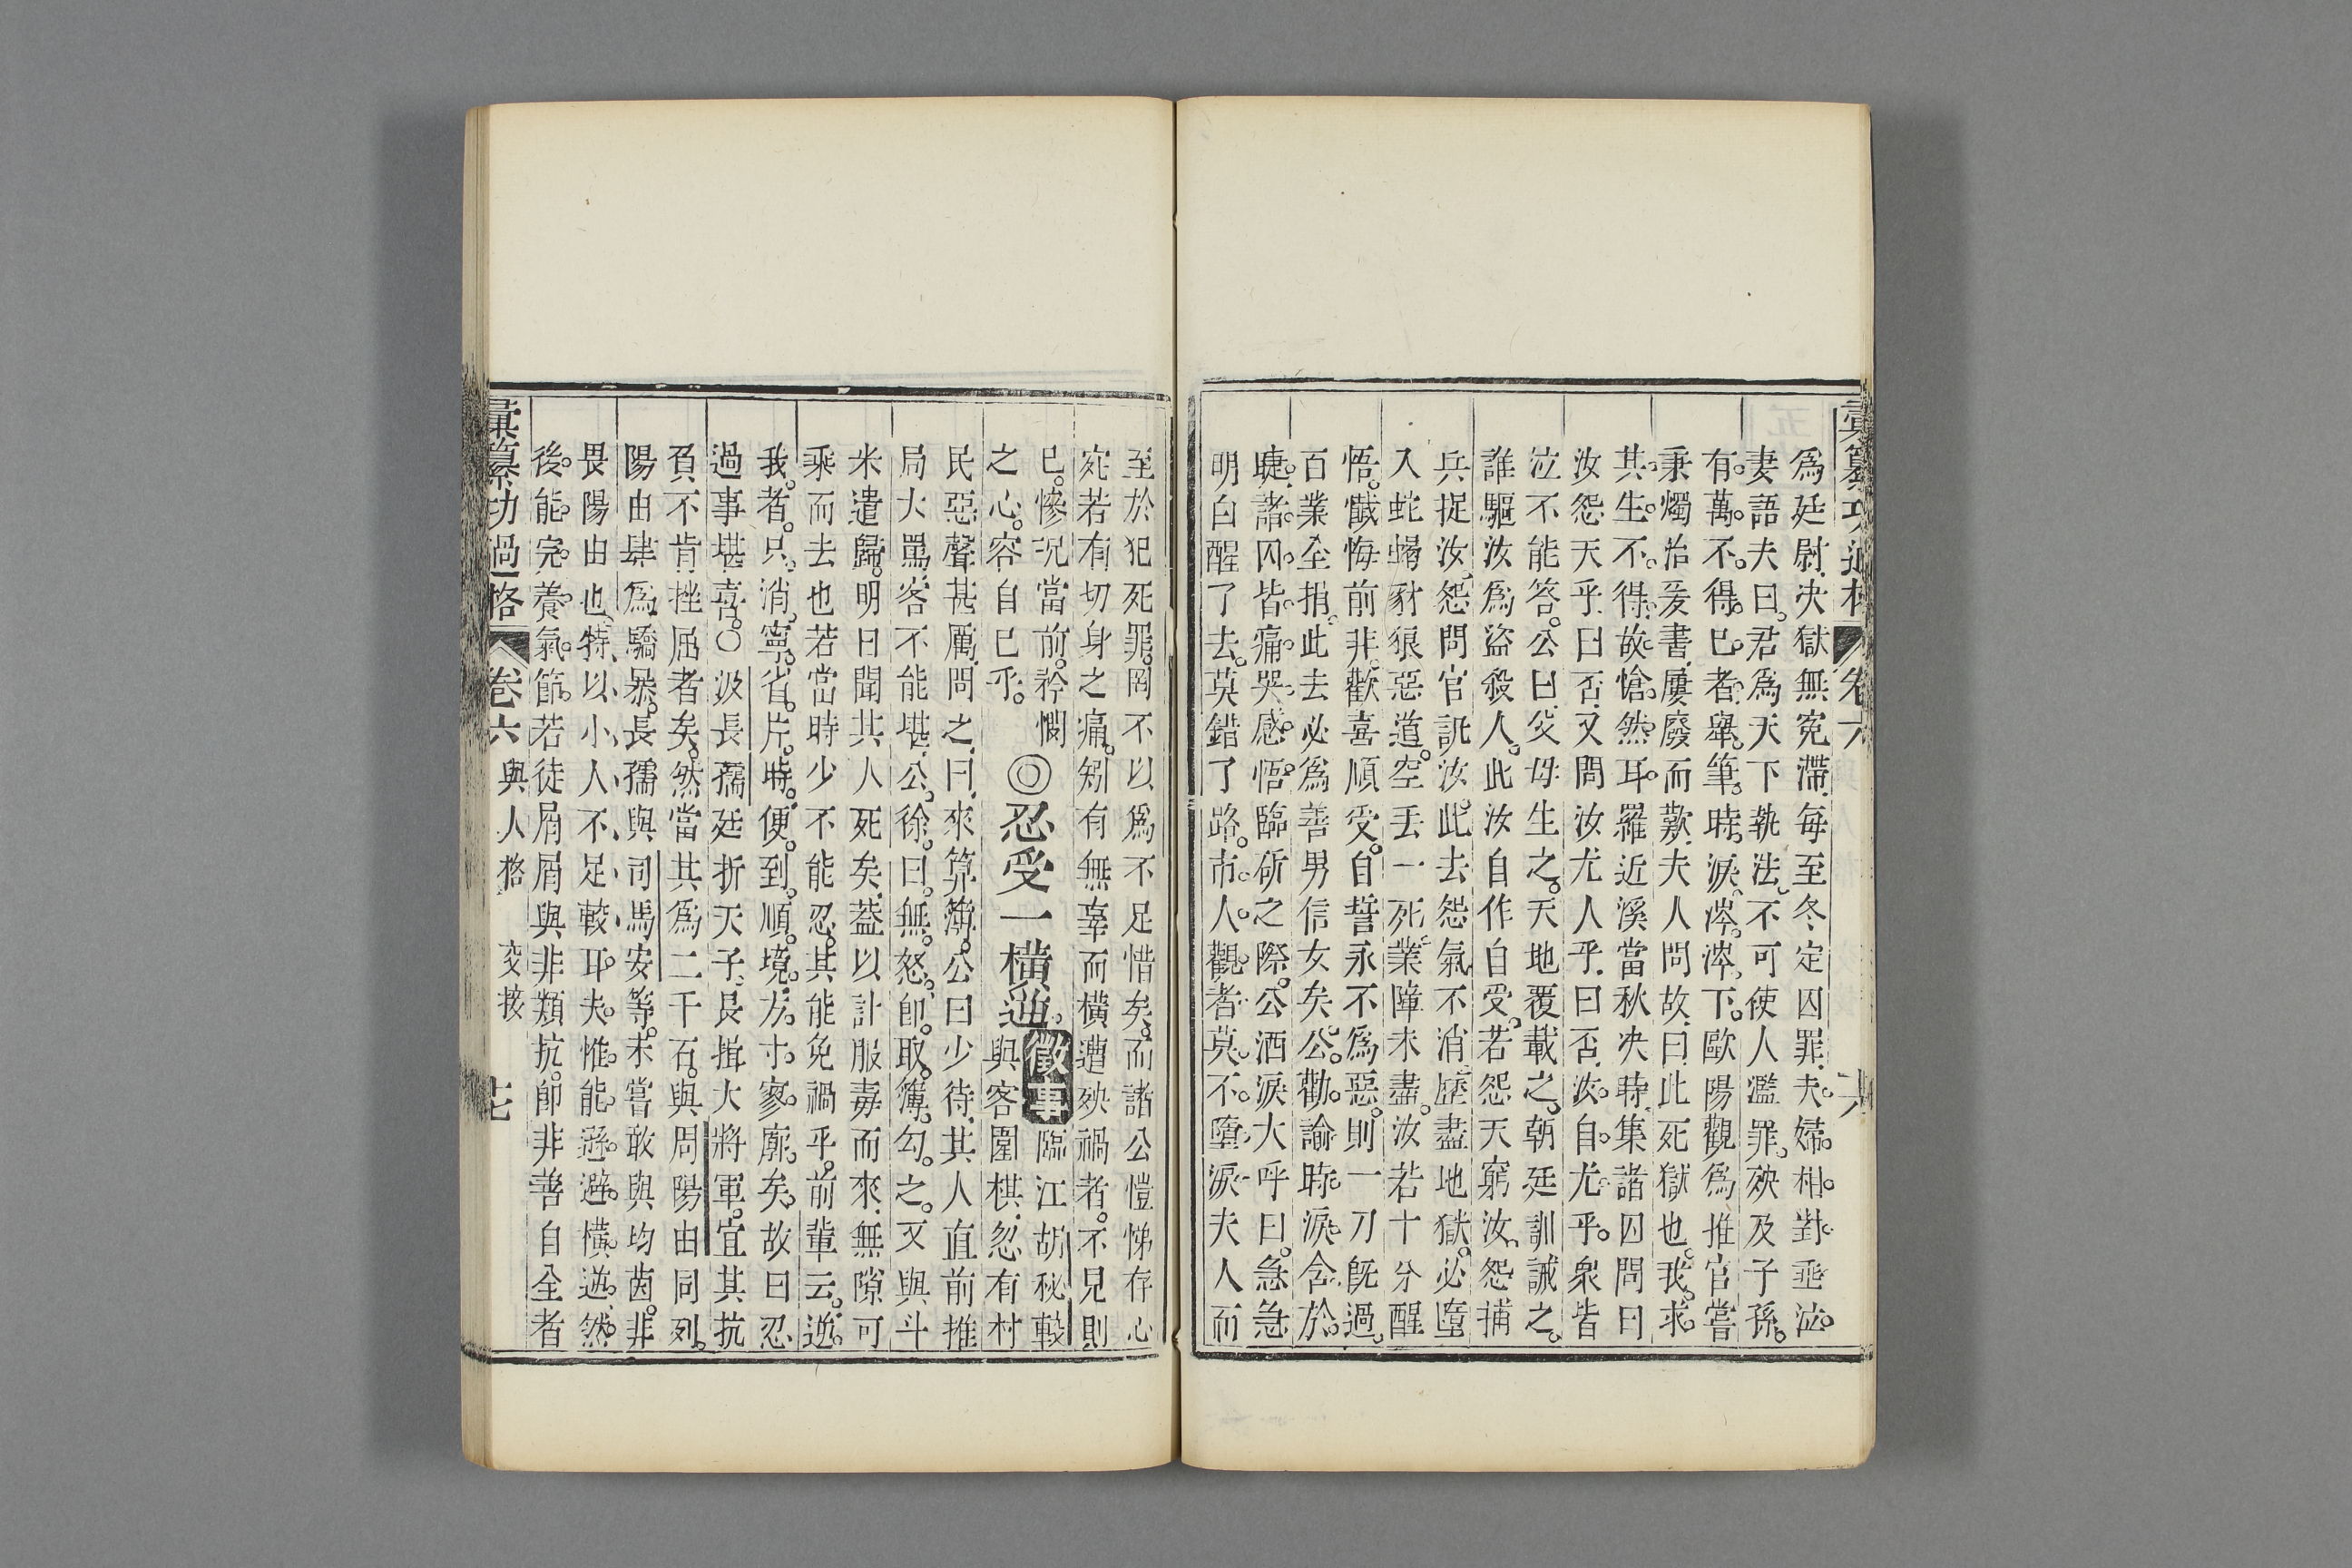 彙纂功過格 卷六 十六
爲廷尉決獄無冤滯每至冬定囚罪夫婦相對垂泣
妻語夫曰君爲天下執法不可使人濫罪殃及子孫
有萬不得已者舉筆時淚涔涔下歐陽觀爲推官嘗
秉燭治爰書屢廢而歎夫人問故曰此死獄也我求
其生不得故愴然耳羅近溪當秋決時集諸囚問曰
汝怨天乎曰否又問汝尤人乎曰否汝自尤乎衆皆
泣不能答公曰父母生之天地覆載之朝廷訓誡之
誰驅汝爲盜殺人此汝自作自受若怨天窮汝怨捕
兵捉汝怨問官訊汝此去怨氣不消歷盡地獄必墮
入蛇蝎豺狼惡道空丟一死業障未盡汝若十分醒
悟懺悔前非歡喜順受自誓永不爲惡則一刀旣過
百業全捐此去必爲善男信女矣公勸諭時淚含於
睫諸囚皆痛哭感悟臨斫之際公洒淚大呼曰急急
明白醒了去莫錯了路市人觀者莫不墮淚夫人而
至於犯死罪罔不以爲不足惜矣而諸公愷悌存心
宛若有切身之痛矧有無辜而橫遭殃禍者不見則
已慘況當前矜憫之心容自已乎
◎忍受一橫逆 徵事 臨江胡秘較
與客圍棋忽有村
民惡聲甚厲問之曰來算簿公曰少待其人直前推
局大罵客不能堪公徐曰無怒卽取簿勾之又與斗
米遣歸明日聞其人死矣蓋以計服毒而來無隙可
乘而去也若當時少不能忍其能免禍乎前輩云逆
我者只消寧省片時便到順境方寸寥廓矣故曰忍
過事堪喜○汲長孺廷折天子長揖大將軍宜其抗
頁不肯挫屈者矣然當其爲二千石與周陽由同列
陽由肆爲驕暴長孺與司馬安等未嘗敢與均茵非
畏陽由也特以小人不足較耳夫惟能遜避橫逆然
後能完養氣節若徒屑屑與非類抗卽非善自全者
彙纂功過格 卷六 與人格 交接 十七